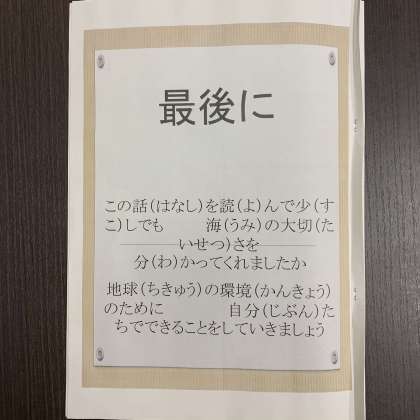 最後に
この話(はなし)を読(よ)んで少(す
こ)しでも　　海(うみ)の大切(た
いせつ)さを
分(わ)かってくれましたか
地球(ちきゅう)の環境(かんきょう)
のために　　　自分(じぶん)た
ちでできることをしていきましょう